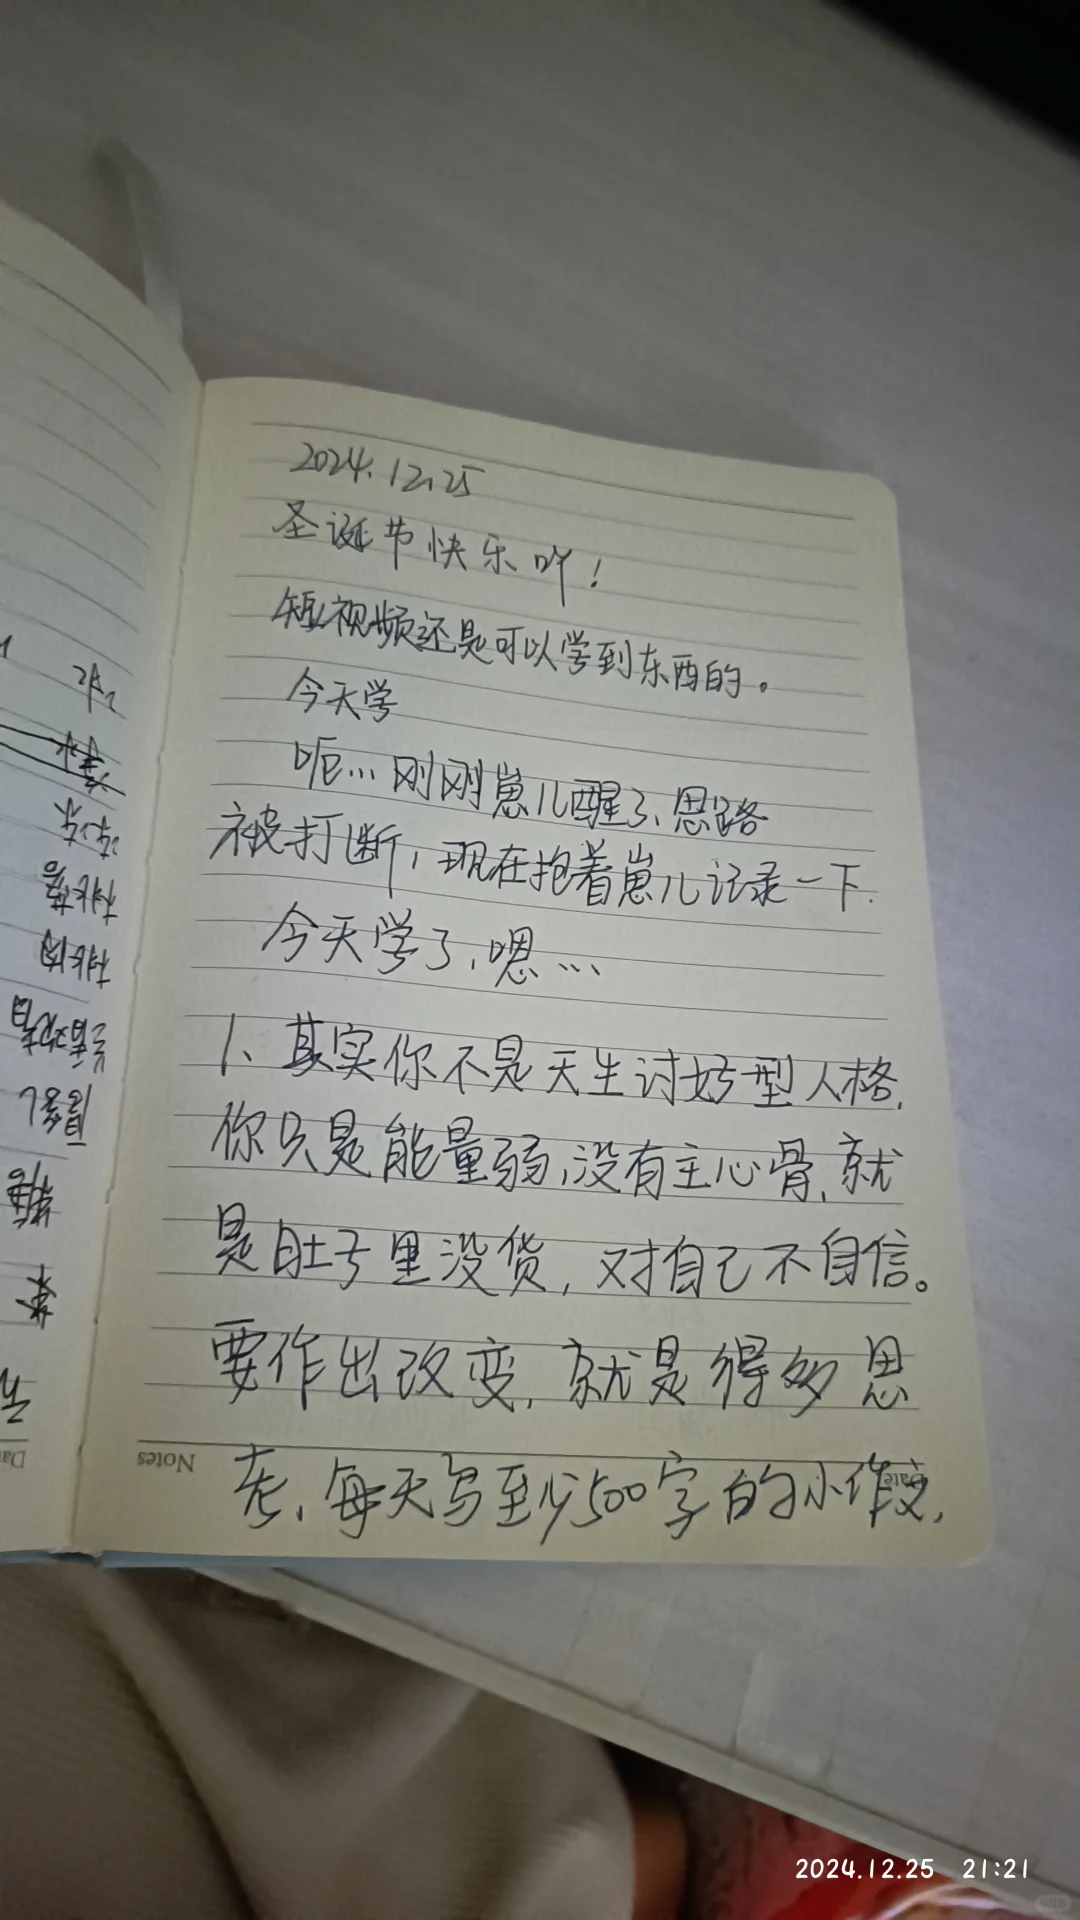 2024.12.25
圣诞节快乐吖！
短视频还是可以学到东西的。
今天学
呃…刚刚崽儿醒了、思路
被打断，现在抱着崽儿记录一下.
今天学了，嗯…
1、其实你不是天生讨好型人格,
你只是能量弱,没有主心骨,就
是肚子里没货，对自己不自信。
要作出改变,就是得多思
Notes
Date
考、每天写至少500字的小作文,
2024.12.25 21:21